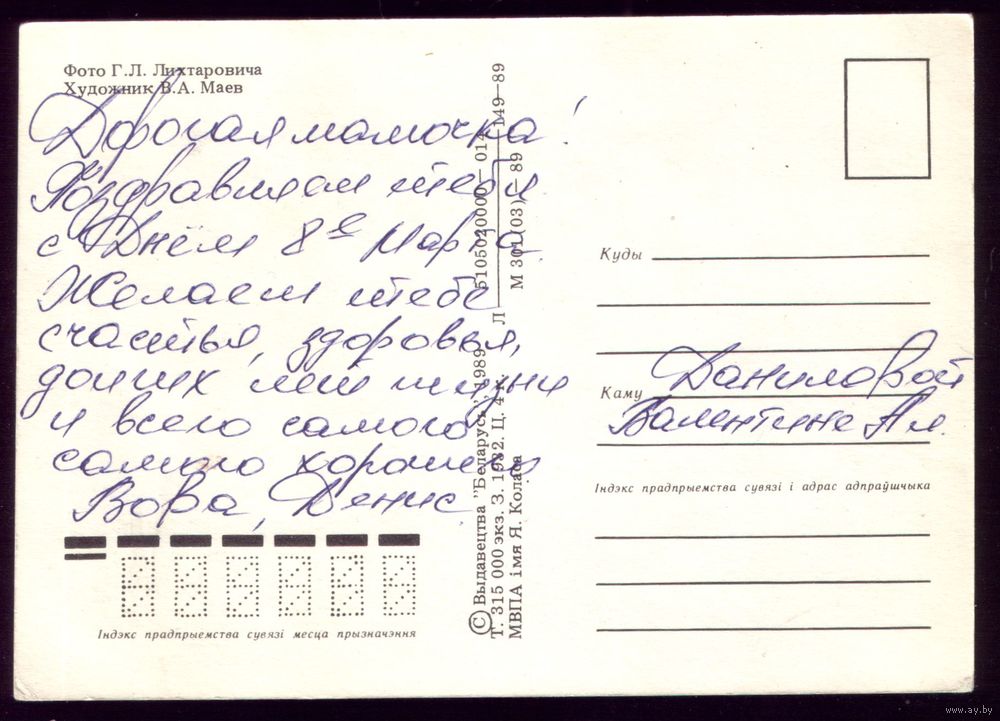 Фото Г.Л. Лихтаровича
Художник В.А. Маев
Дорогая мамочка!
Поздравляем тебя
с Днём 8е Марта
Желаем тебе
счастья, здоровья,
долгих лет жизни
и всего самого
самого хорошего
Вова, Денис.
Індэкс прадпрыемства сувязі месца прызначэння
© Выдавецтва "Беларусь", 1989.
Т. 315 000 экз. З. 1982. Ц. 4 к.
МВПА імя Я. Коласа
Л 5105020000—014 149—89
М 301(03)—89
Куды
Каму Даниловой
Валентине Ал.
Індэкс прадпрыемства сувязі і адрас адпраўшчыка
www.ay.by